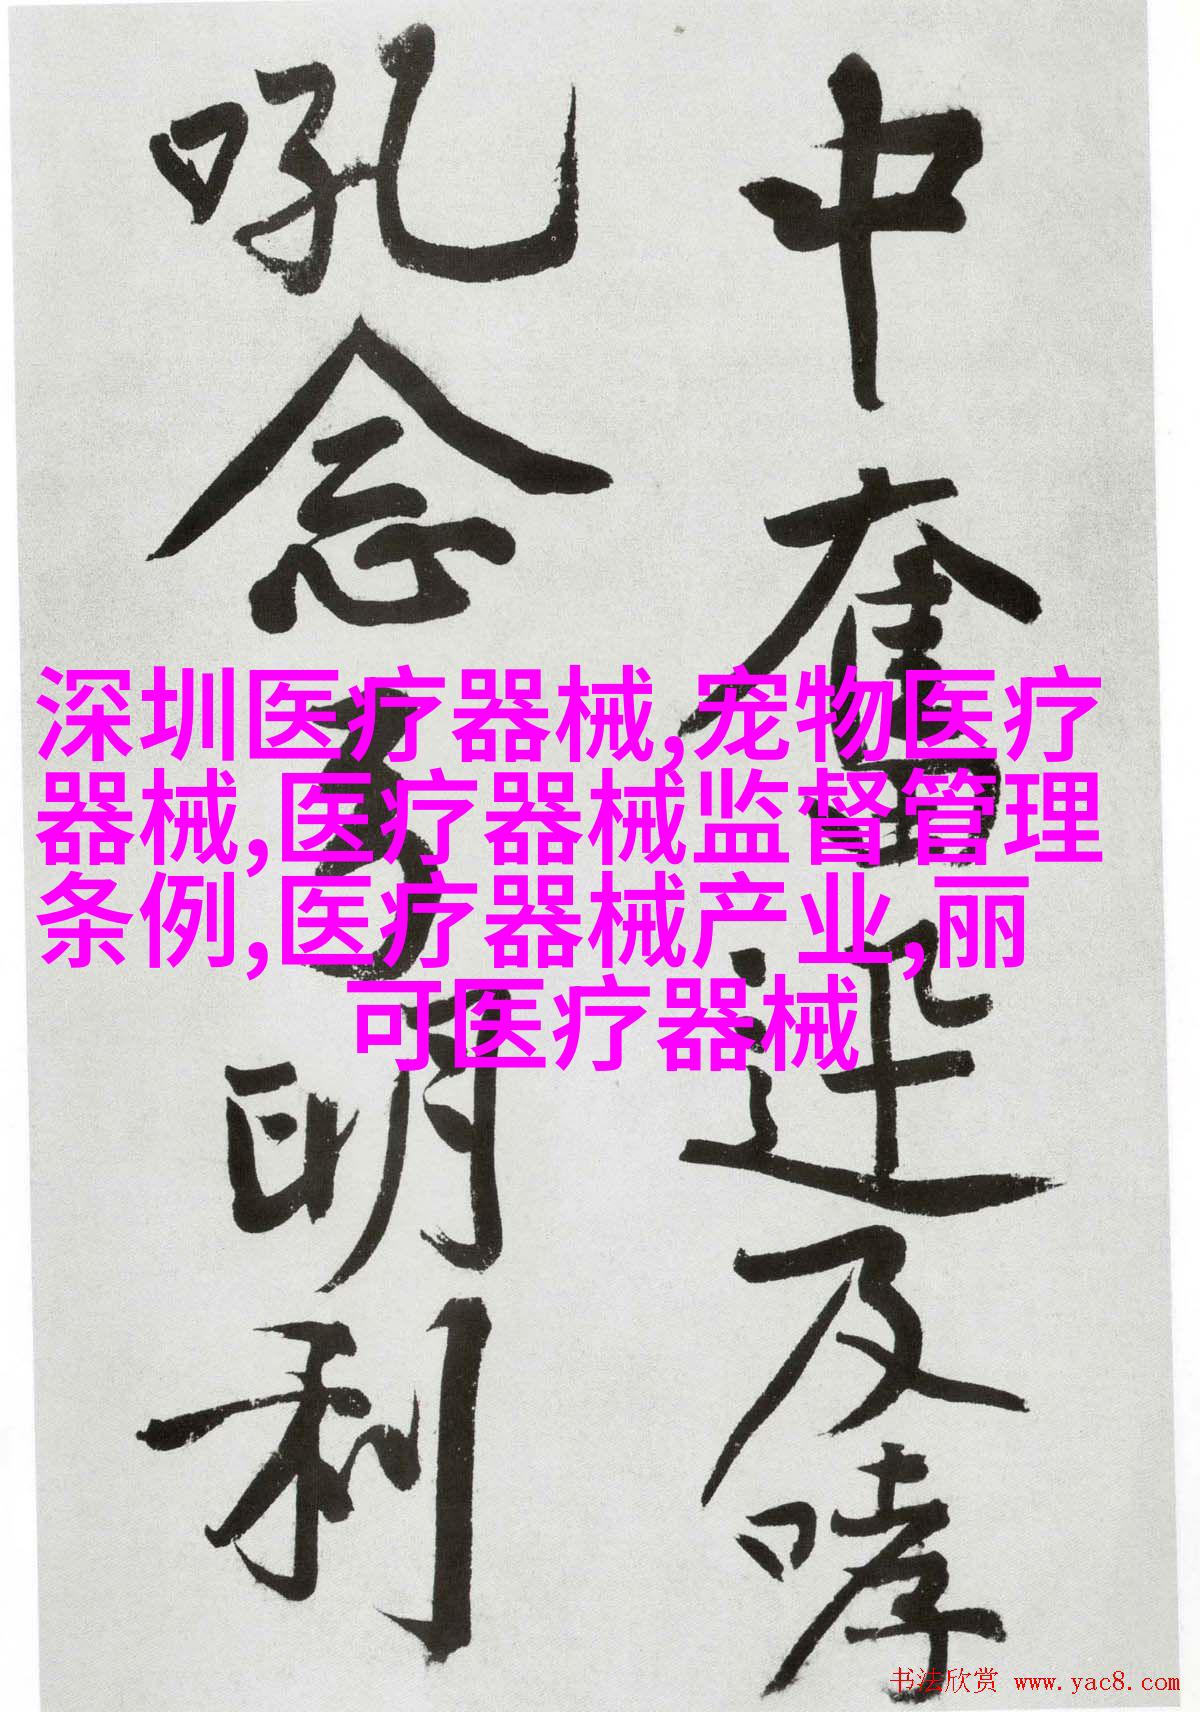 中奮迅及哮
吼念了明利
深圳医疗器械,宠物医疗
器械,医疗器械监督管理
条例,医疗器械产业,丽
可医疗器械
书法欣赏 www.yac8.com